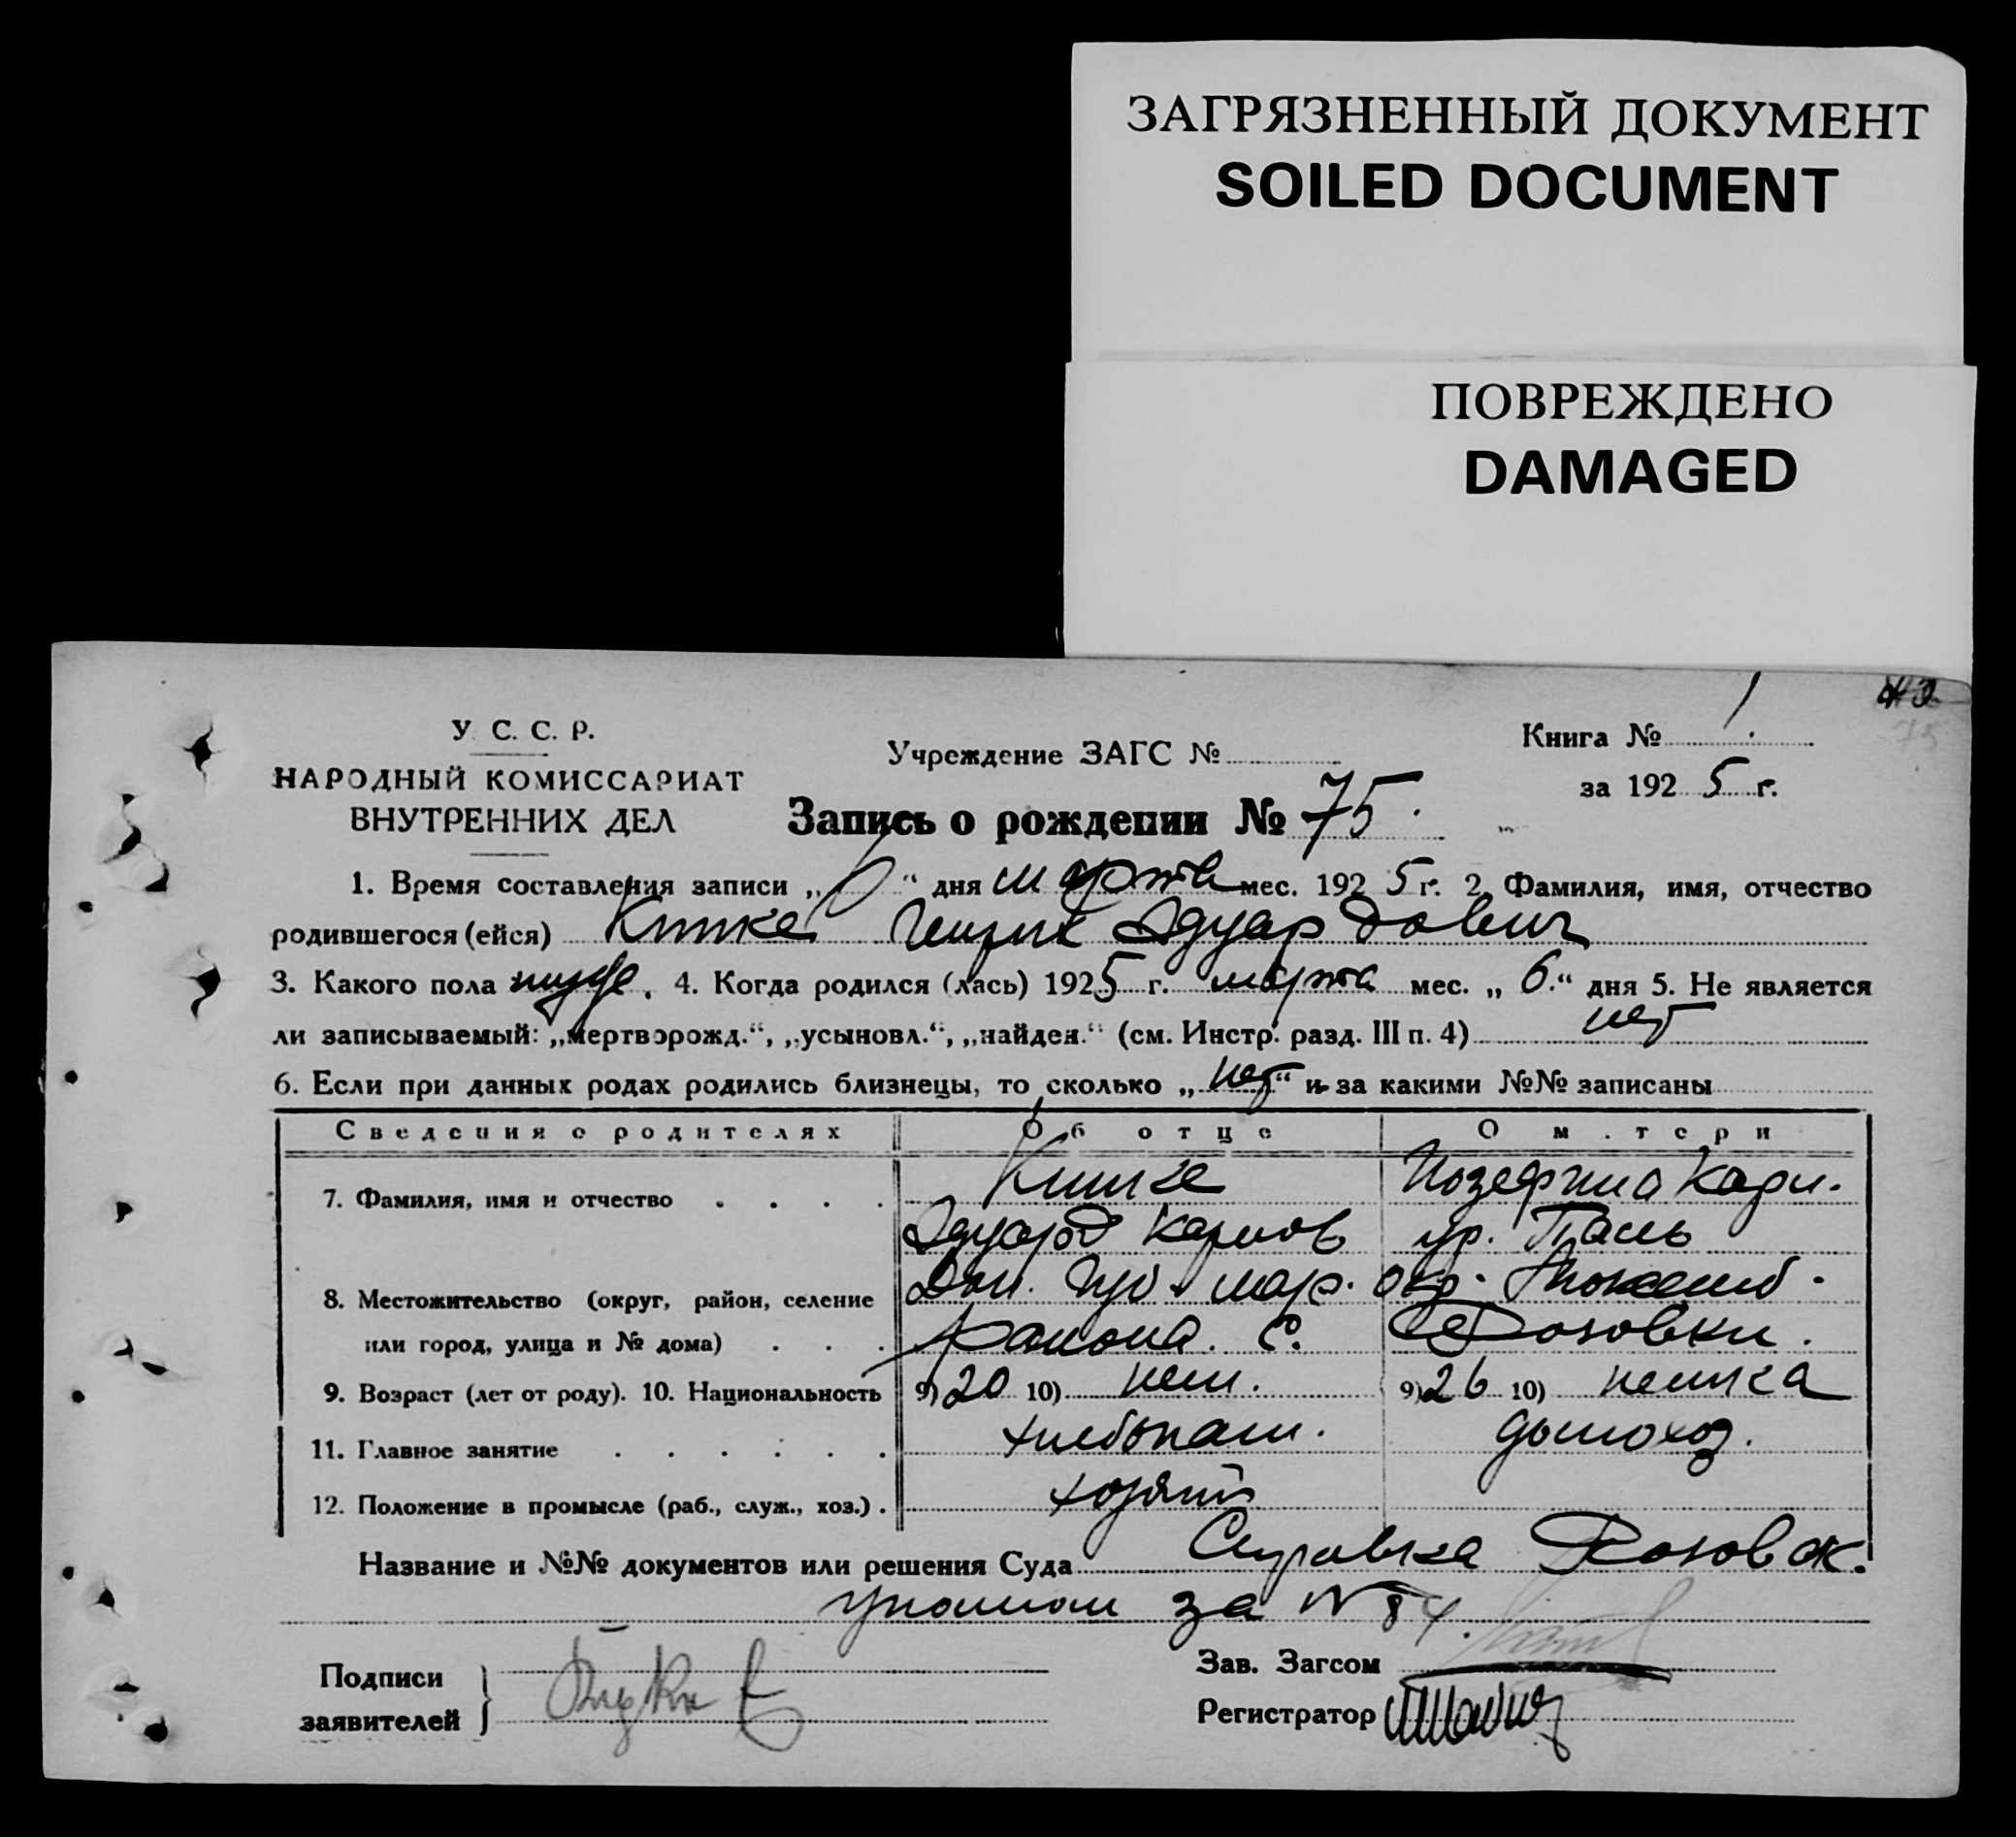 ЗАГРЯЗНЕННЫЙ ДОКУМЕНТ
SOILED DOCUMENT
ПОВРЕЖДЕНО
DAMAGED
У. С. С. Р.
НАРОДНЫЙ КОМИССАРИАТ
ВНУТРЕННИХ ДЕЛ
Учреждение ЗАГС №
Книга № 1.
за 1925 г.
75
Запись о рождении № 75.
1. Время составления записи „ “ дня марта мес. 1925 г. 2. Фамилия, имя, отчество
родившегося (ейся) Эдуардович
3. Какого пола 4. Когда родился (лась) 1925 г. марта мес. „6.“ дня 5. Не является
ли записываемый: „мертворожд.“, „усыновл.“, „найден.“ (см. Инстр. разд. III п. 4) нет
6. Если при данных родах родились близнецы, то сколько „нет“ и за какими №№ записаны
Сведения о родителях Об отце О матери
7. Фамилия, имя и отчество . . . . Кишке Иозефина Карл.
Эдуард Карлов ур.
8. Местожительство (округ, район, селение Дон. Губ. мар. окр.
или город, улица и № дома) . . . района. с. Розовки.
9. Возраст (лет от роду). 10. Национальность 9) 20 10) нем. 9) 26 10) немка
11. Главное занятие . . . . . . хлебопаш. домохоз.
12. Положение в промысле (раб., служ., хоз.) . хозяин
Название и №№ документов или решения Суда Справка Розовск.
за № 84.
Подписи
заявителей
Зав. Загсом
Регистратор